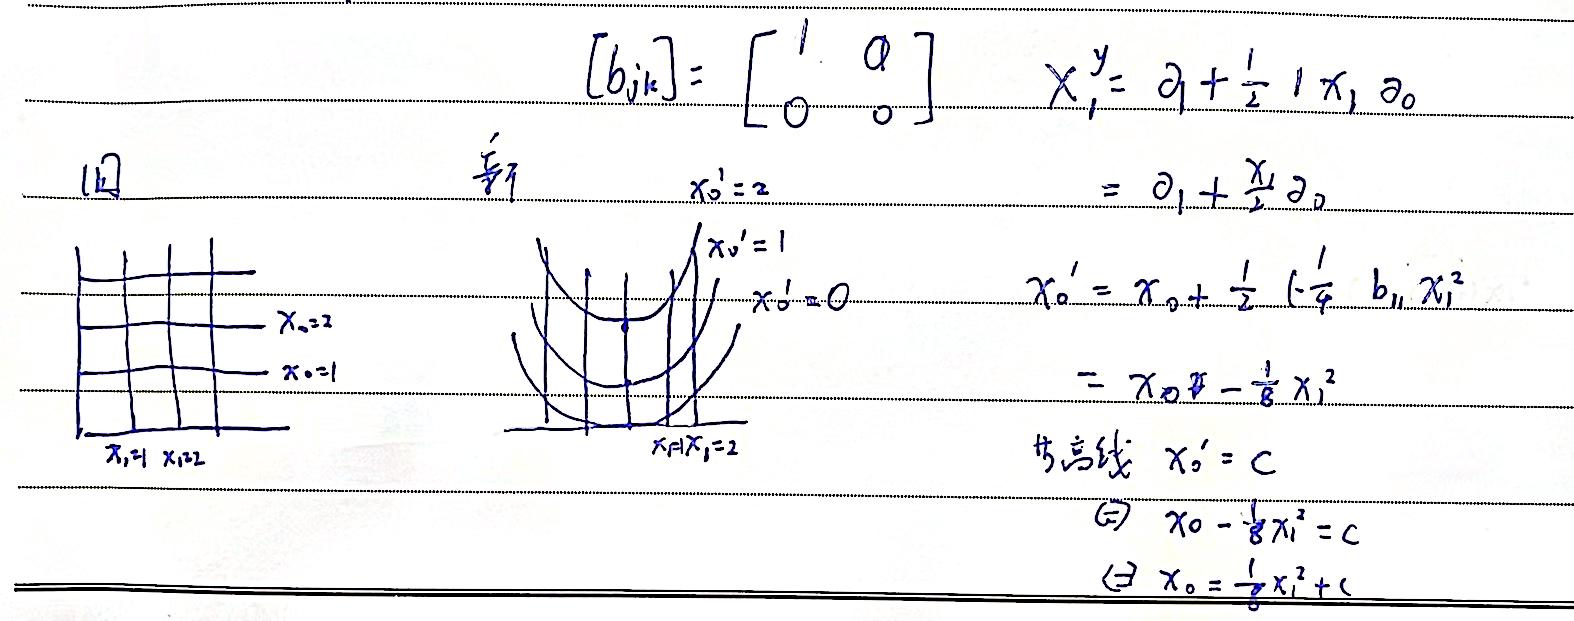 [b_{jk}] = [ 1 0 ; 0 0 ]
X_1^y = ∂_1 + 1/2 1 x_1 ∂_0
= ∂_1 + x_1/2 ∂_0
旧
x_0=2
x_0=1
x_1=1 x_1=2
新
x_0'=2
x_0'=1
x_0'=0
x_1=1 x_1=2
x_0' = x_0 + 1/2 (-1/4 b_{11} x_1^2
= x_0 - 1/8 x_1^2
等高线 x_0' = c
⇔ x_0 - 1/8 x_1^2 = c
⇔ x_0 = 1/8 x_1^2 + c